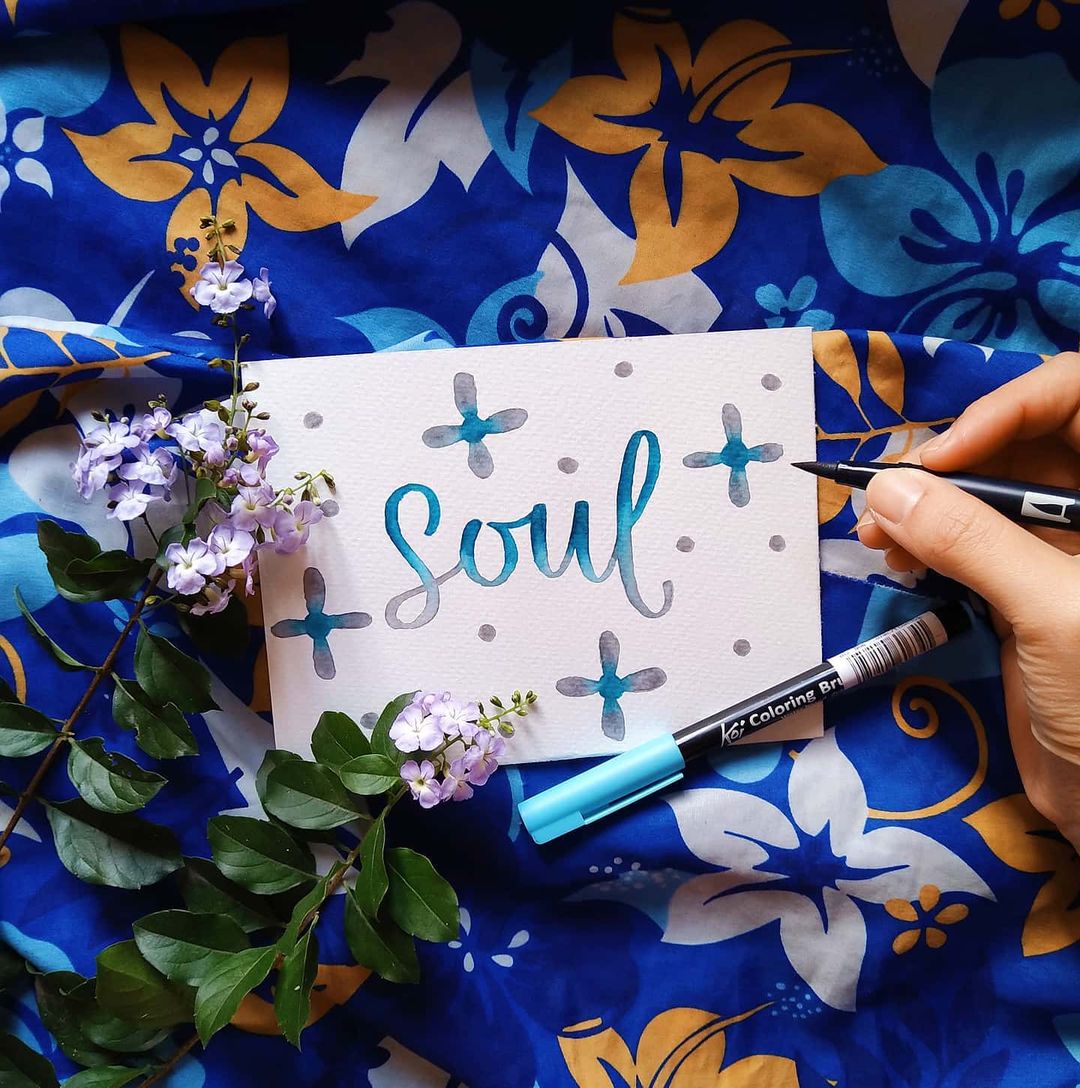 soul
Koi Coloring Bru